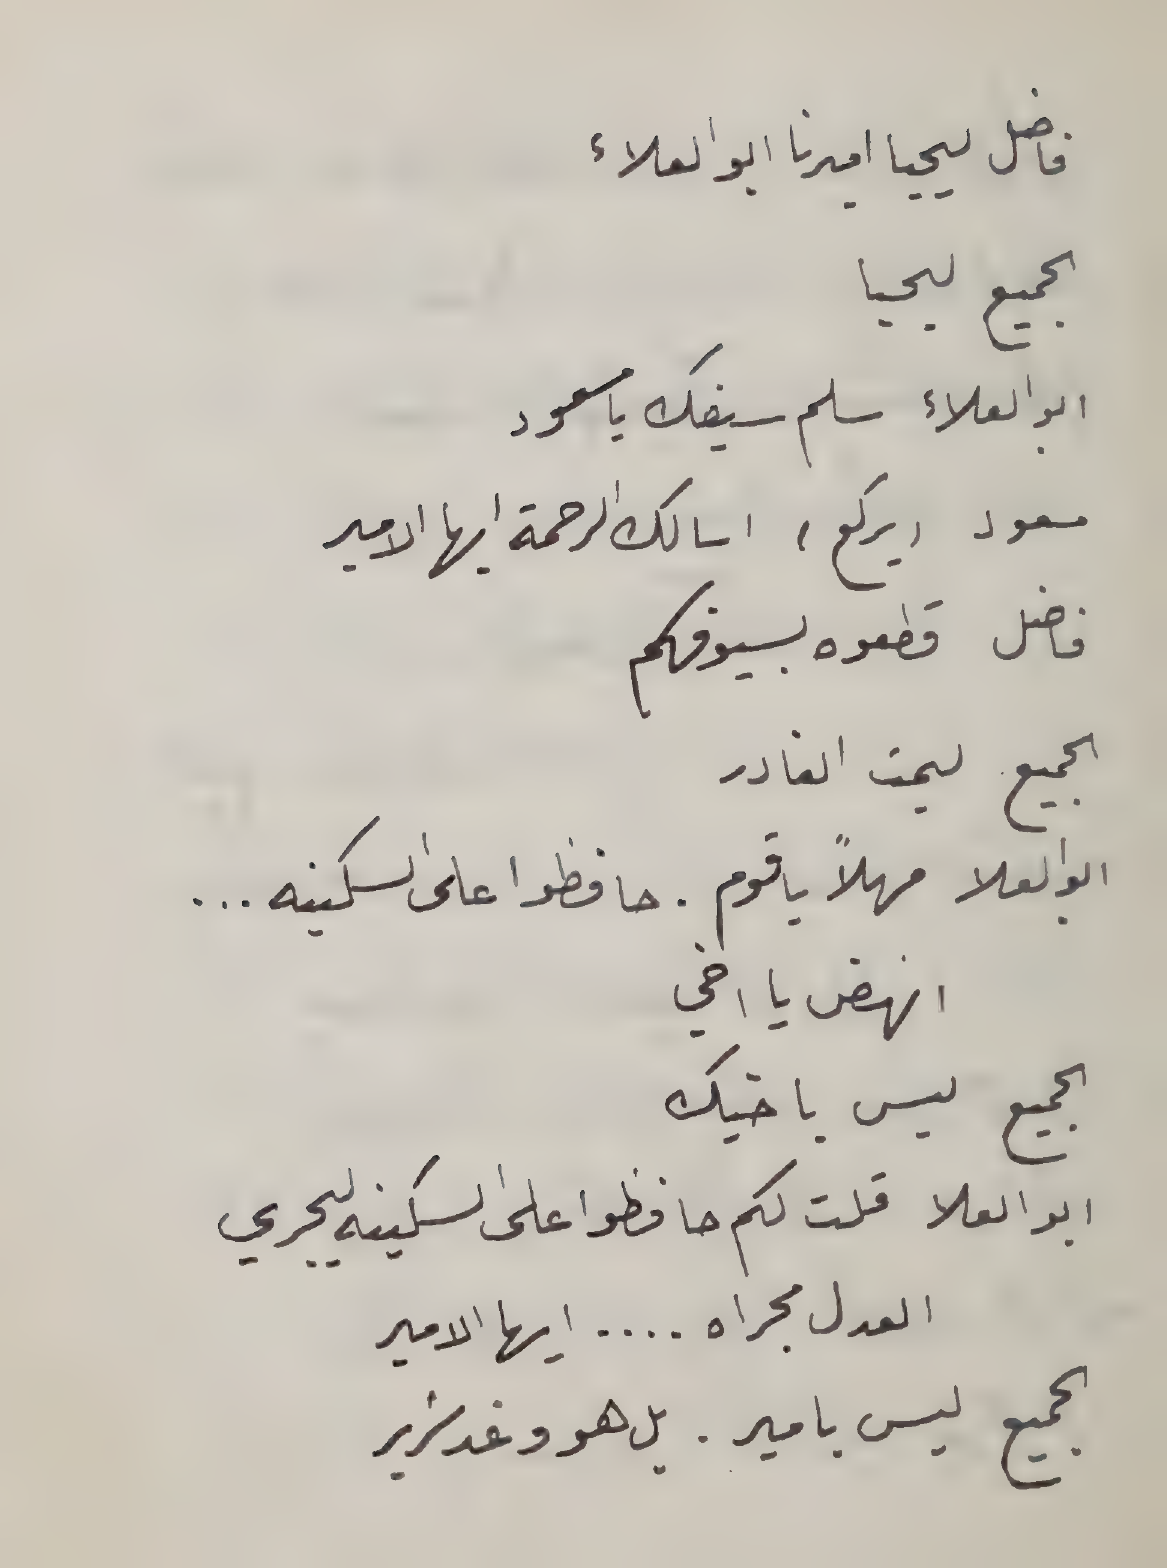 فاضل ليحيا اميرنا ابو العلاء
الجميع ليحيا
ابو العلاء سلم سيفك يا مسعود
مسعود (يركع) اسالك الرحمة ايها الامير
فاضل قطعوه بسيوفكم
الجميع ليمت الغادر
ابو العلا مهلاً يا قوم . حافظوا على السكينه ...
انهض يا اخي
الجميع ليس باخيك
ابو العلا قلت لكم حافظوا على السكينه ليجري
العدل مجراه .... ايها الامير
الجميع ليس بامير . بل هو وغد شرير